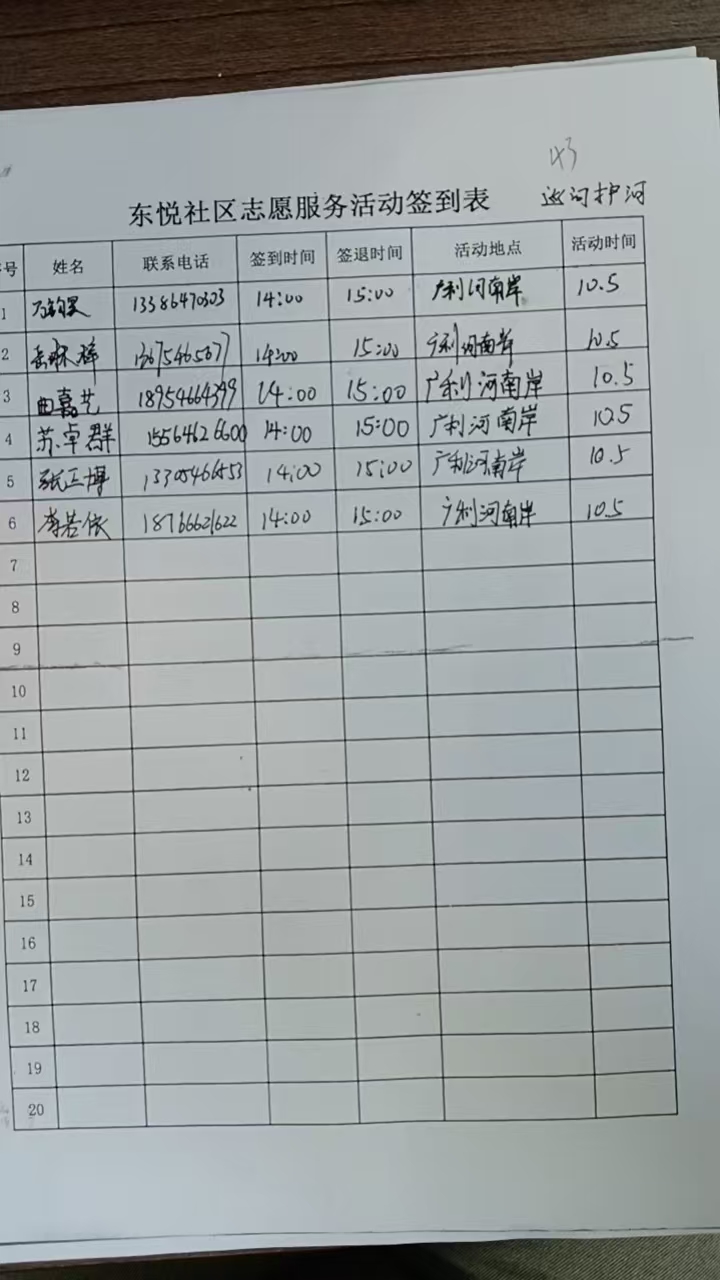 43
东悦社区志愿服务活动签到表 巡河护河
序号 姓名 联系电话 签到时间 签退时间 活动地点 活动时间
1 13386470303 14:00 15:00 广利河南岸 10.5
2 14:00 15:00 广利河南岸 10.5
3 曲嘉艺 18954664399 14:00 15:00 广利河南岸 10.5
4 苏卓群 15564626600 14:00 15:00 广利河南岸 10.5
5 张正博 14:00 15:00 广利河南岸 10.5
6 李若依 18766621622 14:00 15:00 广利河南岸 10.5
7
8
9
10
11
12
13
14
15
16
17
18
19
20